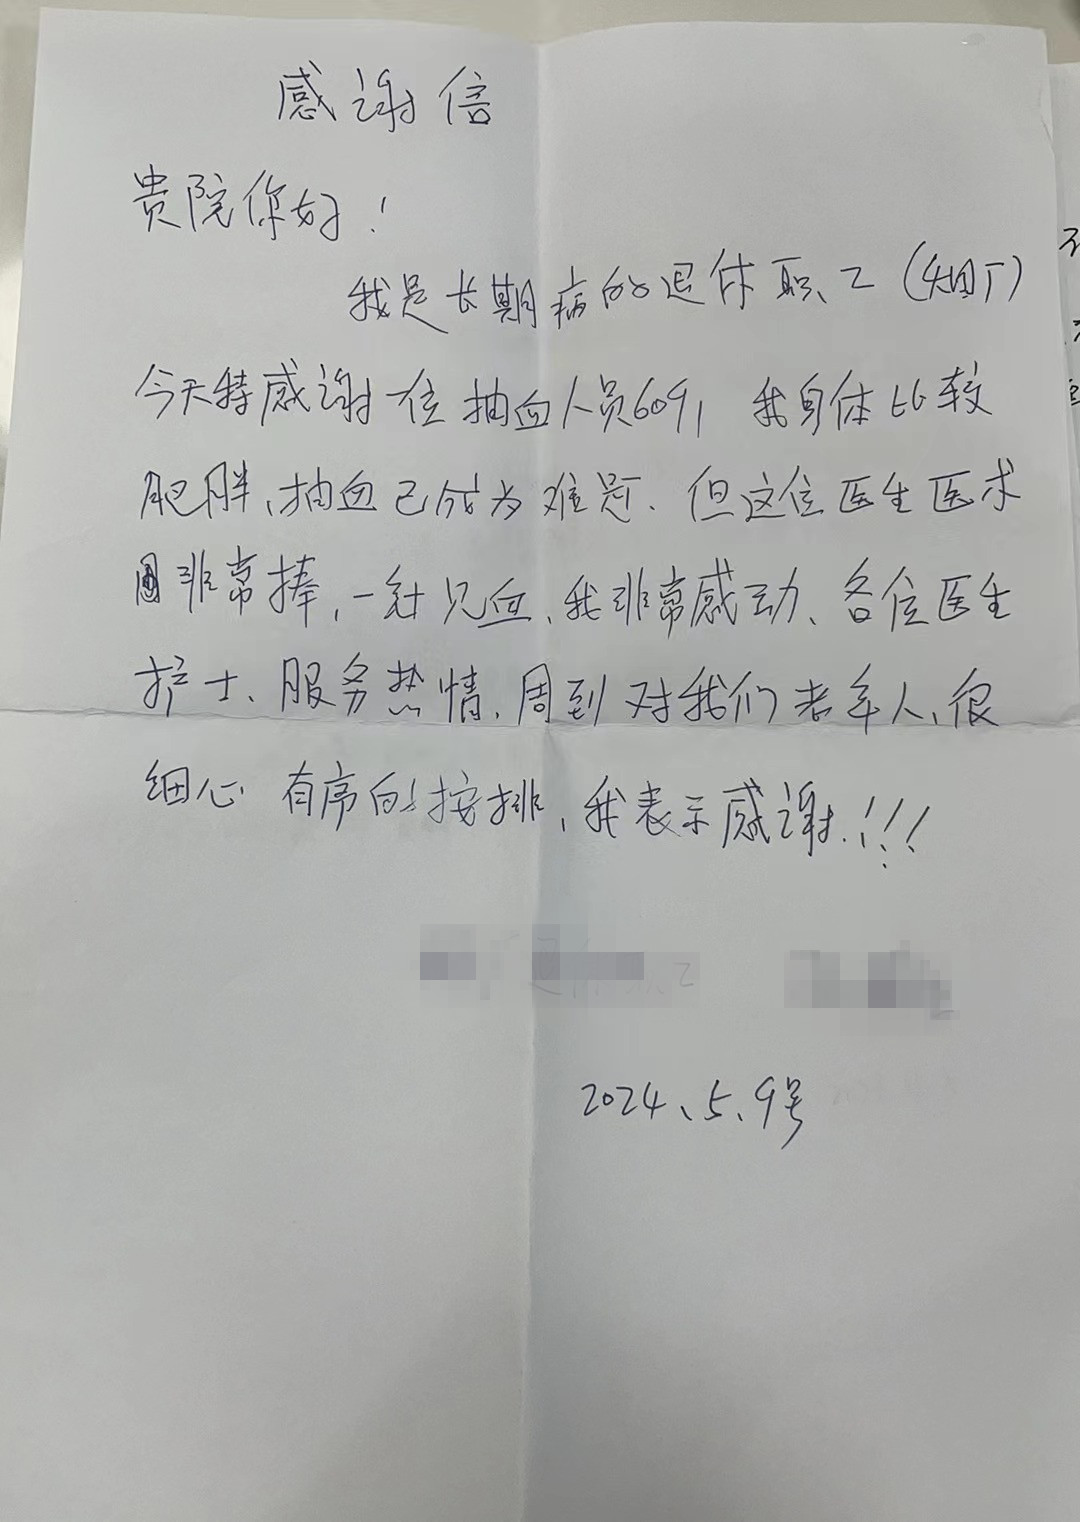 感谢信
贵院你好！
我是长期病的退休职工（烟厂）
今天特感谢一位抽血人员609，我身体比较
肥胖、抽血已成为难题．但这位医生医术
非常捧，一针见血、我非常感动、各位医生
护士、服务热情．周到对我们老年人、很
细心 有序的按排，我表示感谢！！！
2024、5、9号